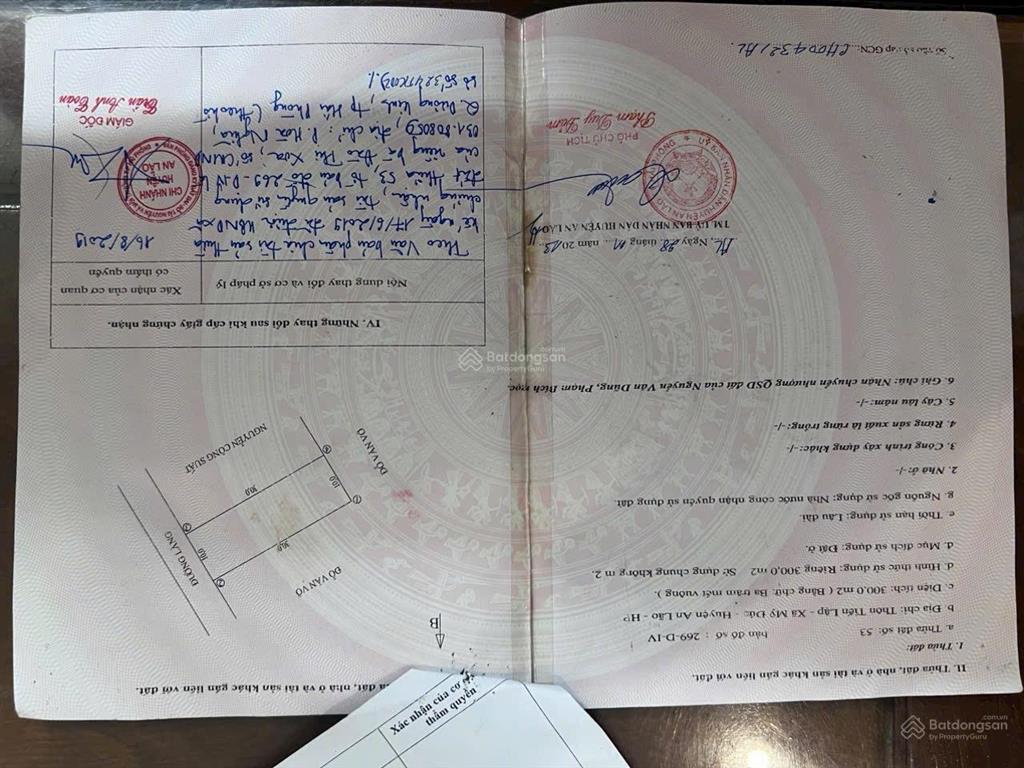 II. Thửa đất, nhà ở và tài sản khác gắn liền với đất.
1. Thửa đất:
a. Thửa đất số: 53 bản đồ số: 269-D-IV
b. Địa chỉ: Thôn Tiến Lập - Xã Mỹ Đức - Huyện An Lão - HP
c. Diện tích: 300,0 m2 ( Bằng chữ: Ba trăm mét vuông ).
d. Hình thức sử dụng: Riêng 300,0 m2 Sử dụng chung không m 2.
đ. Mục đích sử dụng: Đất ở.
e. Thời hạn sử dụng: Lâu dài.
g. Nguồn gốc sử dụng: Nhà nước công nhận quyền sử dụng đất.
2. Nhà ở: -/-
3. Công trình xây dựng khác: -/-
4. Rừng sản xuất là rừng trồng: -/-
5. Cây lâu năm: -/-
6. Ghi chú: Nhận chuyển nhượng QSD đất của Nguyễn Văn Dũng, Phạm Bích Ngọc.
AL, Ngày 28 tháng 11 năm 2013
TM. ỦY BAN NHÂN DÂN HUYỆN AN LÃO
PHÓ CHỦ TỊCH
Phạm Duy Đảm
Số vào sổ cấp GCN: CH00432/AL
a đất, nhà ở và tài sản khác gắn liền với đất.
B
ĐỖ VĂN VỌ
ĐƯỜNG LÀNG
2
10,0
30,0
1
3
10,0
30,0
4
ĐỖ VĂN VỌ
NGUYỄN CÔNG SUẤT
IV. Những thay đổi sau khi cấp giấy chứng nhận.
Nội dung thay đổi và cơ sở pháp lý
Xác nhận của cơ quan có thẩm quyền
Theo Văn bản phân chia tài sản thừa
kế ngày 17/6/2019 tại UBND xã
chứng nhận, tài sản quyền sử dụng
đất thửa 53, tờ bản đồ 269-D-IV là
của riêng bà Phú Xoa, số CMND
031808059, địa chỉ: P. Hòa Nghĩa,
Q. Dương Kinh, Tp Hải Phòng (Theo hồ
16/8/2019
CHI NHÁNH
HUYỆN
AN LÃO
GIÁM ĐỐC
Trần Anh Toàn
Xác nhận của cơ
thẩm quyền
Batdongsan.com.vn
by PropertyGuru
Batdongsan.com.vn
by PropertyGuru